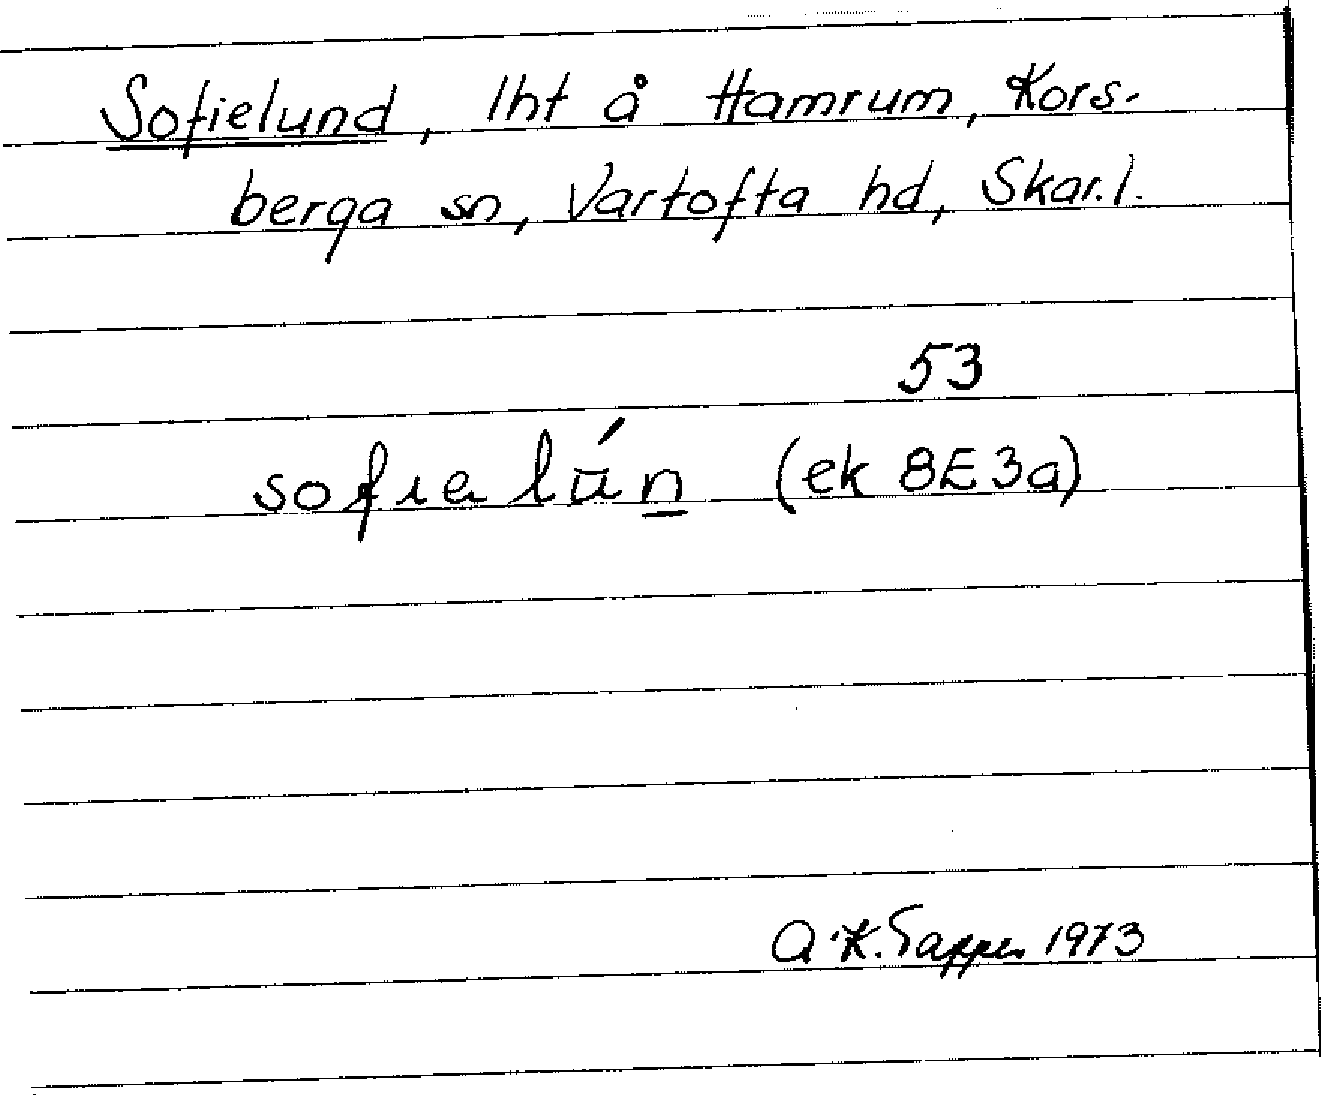 Sofielund, lht å Hamrum, Kors-
berga sn, Vartofta hd, Skar.l.
53
sofıelún (ek 8E3a)
A.K. 1973